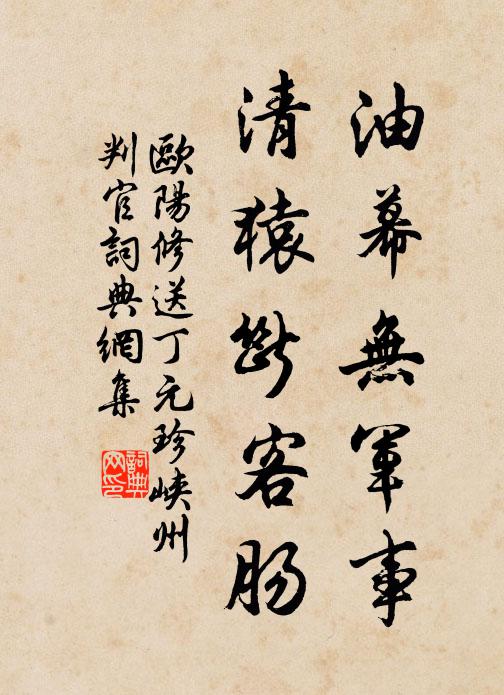 油幕無軍事
清猿斷客腸
歐陽修送丁元珍峽州
判官詞典網集
詞典网印